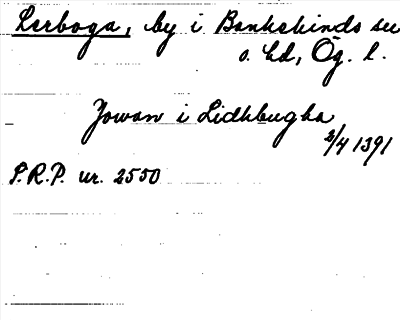 Lerboga, by i Bankekinds sn
o. hd, Ög. l.
Jowan i Lidhbugha
3/4 1391
P.R.P. nr. 2550